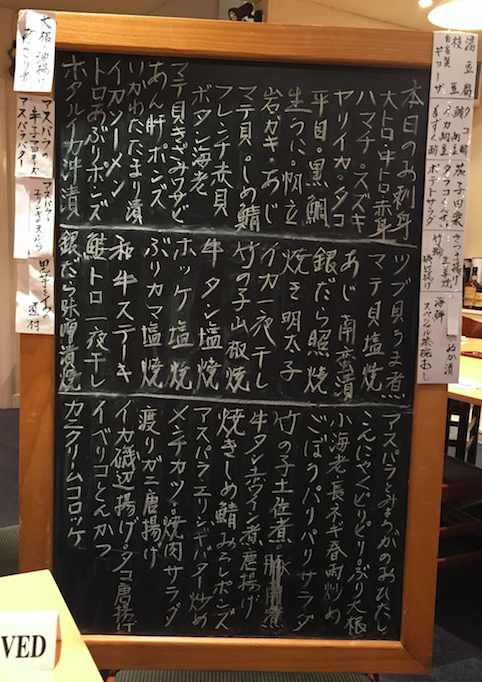 本日のお刺身
大トロ・中トロ・赤身
ハマチ・スズキ
ヤリイカ・タコ
平目・黒鯛
生うに・帆立
岩ガキ・あじ
マテ貝・しめ鯖
フレンチ赤貝
ボタン海老
マテ貝きざみワサビ
あん肝ポンズ
いかわたたまり漬
イカソーメン
トロあぶりポンズ
ホタルイカ沖漬
ツブ貝うま煮
マテ貝塩焼
あじ南蛮漬
銀だら照焼
焼き明太子
イカ一夜干し
竹の子山椒焼
牛タン塩焼
ホッケ塩焼
ぶりカマ塩焼
和牛ステーキ
鮭トロ一夜干し
銀だら味噌漬焼
アスパラとみょうがのおひたし
こんにゃくピリピリ・ぶり大根
小海老と長ネギ春雨炒め
ごぼうパリパリサラダ
竹の子土佐煮・豚角煮
牛タン赤ワイン煮・唐揚げ
焼きしめ鯖みぞれポンズ
アスパラ・エリンギバター炒め
メンチカツ・焼肉サラダ
渡りガニ唐揚げ
イカ磯辺揚げ・タコ唐揚げ
イベリコとんかつ
カニクリームコロッケ
湯豆腐
枝豆
自家製ギョーザ
タコ酢
もずく酢
ポテトサラダ
茄子田楽
さつま揚げ
海鮮
スペシャル茶碗むし
ぬか漬
大根・油揚げ
アスパラの
アスパラバター
アスパラと
VED